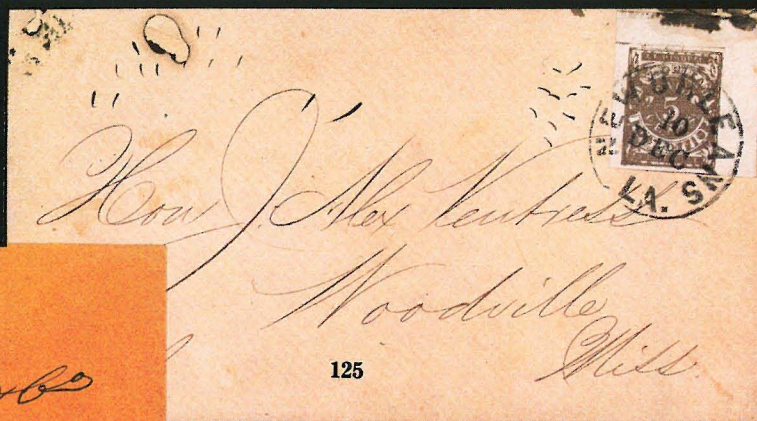 NEW ORLEANS
10
DEC
LA.
5
Hon J. Alex Ventress
Woodville
Miss
125